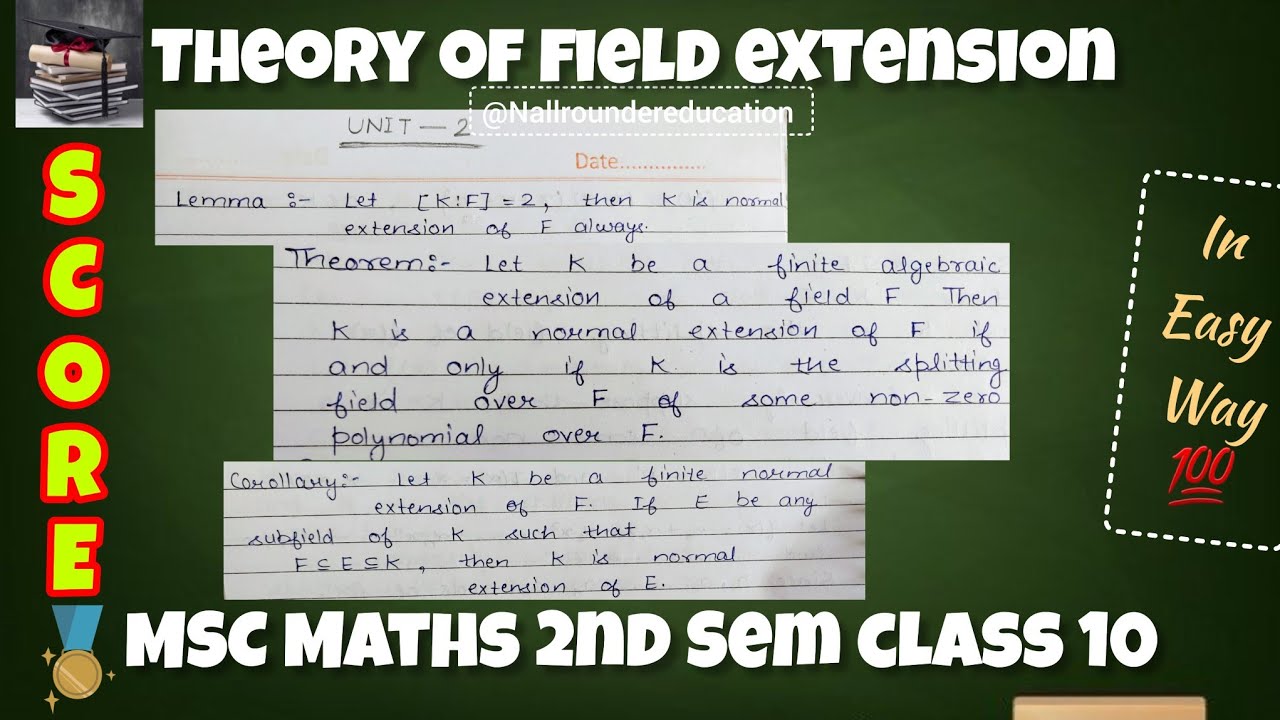 THEORY OF FIELD EXTENSION
@Nallroundereducation
UNIT - 2
Date...............
Lemma :- Let [K:F] = 2, then K is normal
extension of F always.
Theorem:- Let K be a finite algebraic
extension of a field F Then
K is a normal extension of F if
and only if K is the splitting
field over F of some non-zero
polynomial over F.
Corollary:- Let K be a finite normal
extension of F. If E be any
subfield of K such that
F ⊆ E ⊆ K, then K is normal
extension of E.
SCORE
In
Easy
Way
100
MSC MATHS 2nd Sem CLASS 10